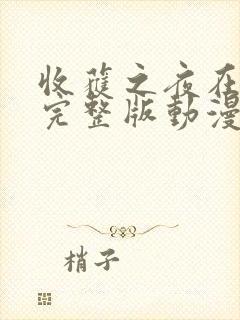 收蓷之夜在
完整版動漫
梢子